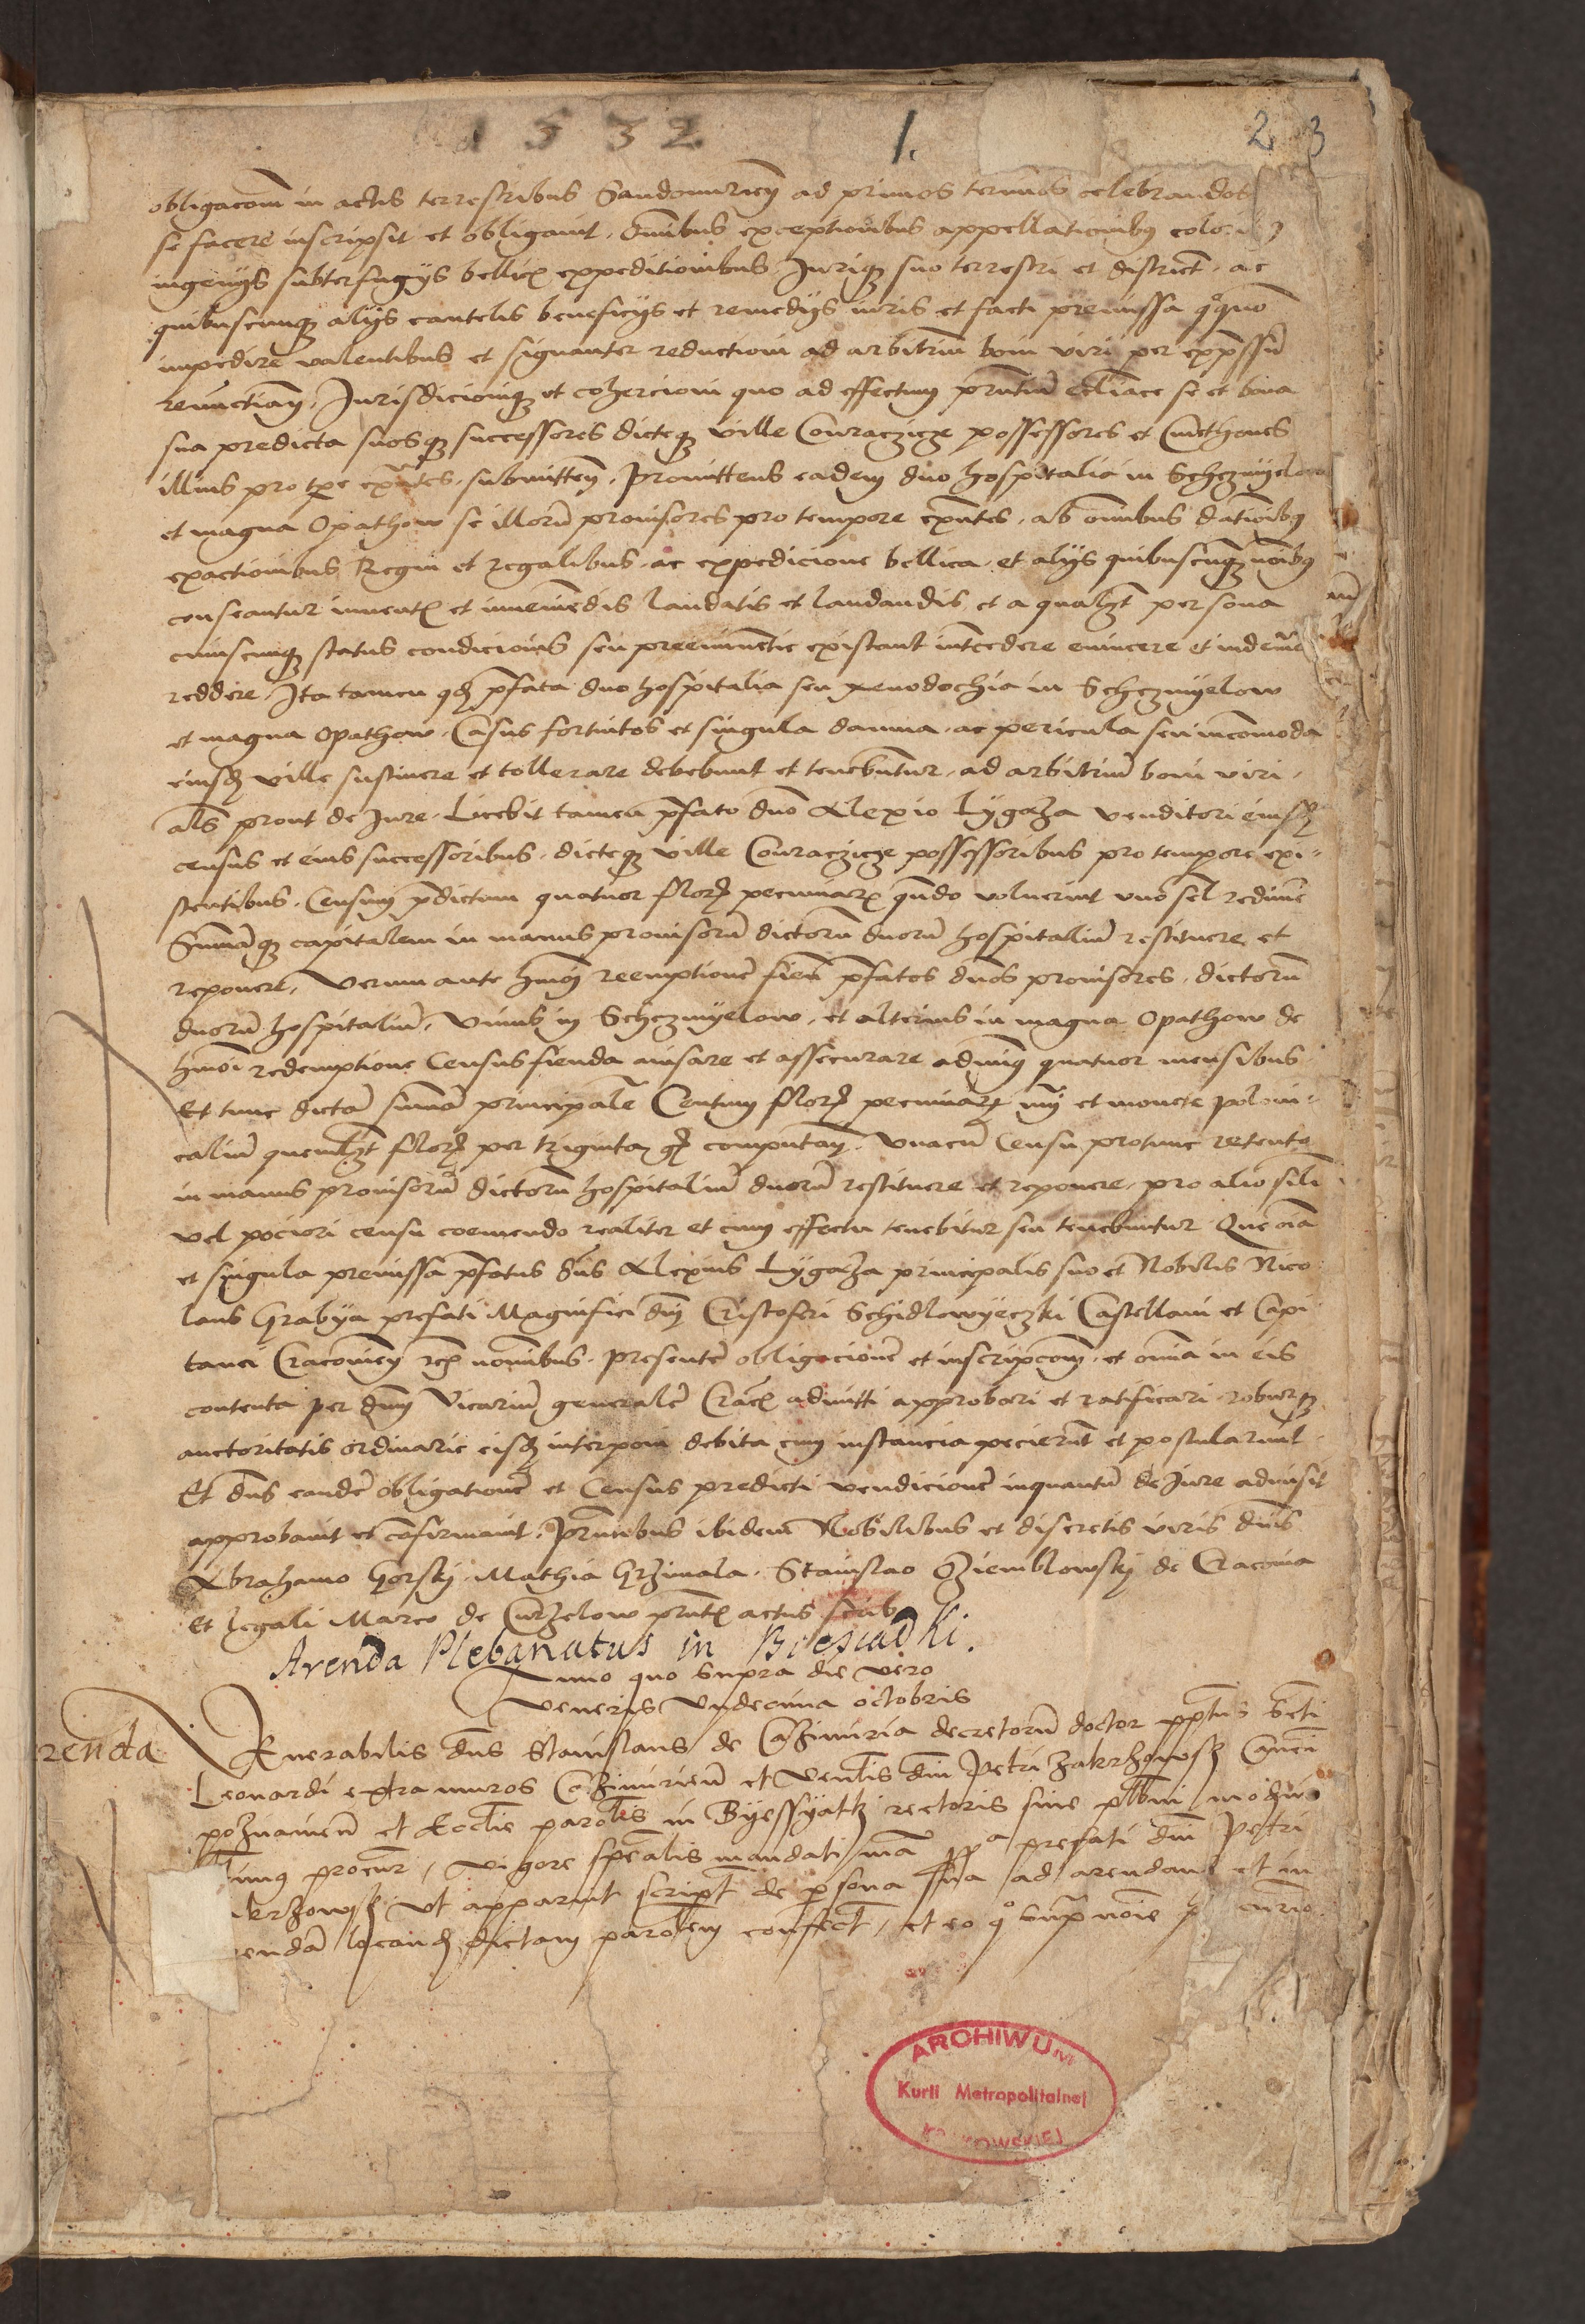 1532 1. 2 3
obligacom in actis terrestribus Sandomirien ad primos terminos celebrandos
se facere inscripsit et obligavit. Omnibus exceptionibus appellationibus
ingenys subterfugys bellicis expeditionibus. Jurique suo terrestri et district. ac
quibuscunque alys cautelis beneficys et remedys iuris et facti premissa
impedire valentibus et signanter reductioni ad arbitrium boni viri per expressum
renunctians. Jurisdicionique et cohercioni quo ad effectum se et bona
sua predicta suosque successores dicteque ville Conraczicze possessores et Cmethones
illius pro tpe exntes submittens. Promittens eadem duo hospitalia in Schczmyelow
et magna Opathow se illorum provisores pro tempore exntes. ab omnibus dationibus
exactionibus Regni et regalibus. ac expedicione bellica. et alys quibuscunque noibus
censeantur inventis et inveniendis laudatis et laudandis, et a qualibet persona
cuiuscunque status condicionis seu preeminentie existant intercedere evincere et indemne
reddere. Ita tamen quod pfata duo hospitalia seu xenodochia in Schczmyelow
et magna Opathow. Casus fortuitos et singula damna. ac pericula seu incomoda
eiusdem ville sustinere et tollerare debebunt et tenebuntur. ad arbitrium boni viri.
als prout de Jure. Licebit tamen pfato dno Alexio Lygaza venditori eiusdem
census et eius successoribus. dicteque ville Conraczicze possessoribus pro tempore exi-
stentibus. Censum pdictum quatuor flor pecuniar qndo voluerint uno sel redimere
Summamque capitalem in manus provisorum dictorum duorum hospitalium restituere et
reponere. Verum ante hmoi reemptionem fiendam pfatos dnos provisores. dictorum
duorum hospitalium. Unius in Schczmyelow. et alterius in magna Opathow de
hmoi redemptione Census fienda avisare et assecurare adminus quatuor mensibus
Et tunc dictam summam principalem Centum flor pecuniar et monete poloni-
calium quemlibet flor per triginta gr computando. Unacum Censu protunc retento
in manus provisorum dictorum hospitalium duorum restituere et reponere. pro alio sili
vel pociori censu coemendo realiter et cum effectu tenebitur seu tenebuntur. Que oia
et singula premissa pfatus dns Alexius Lygaza principalis suo et Nobilis Nico
laus Grabya prefati Magnifici dni Cristoferi Schidlowyeczki Castellani et Capi
tanei Cracovien nominibus. presentem obligacionem et inscripcom. et omnia in eis
contenta per dnm Vicarium generalem Crac admitti approbari et ratificari. roburque
auctoritatis ordinarie eisdem interponi debita cum instancia pecierunt et postularunt.
Et dns eandem obligationem et Census predicti vendicionem inquantum de Jure admisit
approbavit et confirmavit. Pntibus ibidem Nobilibus et discretis viris dnis
Abrahamo Gorsky. Mathia Grzimala. Stanislao Dziemblowsky de Cracovia
Et legali Marco de Curzelow pntis actus scriba
Arenda Plebanatus in Biesiadki.
Anno quo supra die vero
Veneris Undecima octobris
renda
Venerabilis dns Stanislaus de Cazimiria decretorum doctor ppitus Scti
Leonardi extra muros Cazimirien et Ventlis dni Petri Zakrzowsky Canci
poznanien et Ecclie parolis in Byessyatky rectoris sive plbni
procur. Vigore spealis mandati prefati dni Petri
krzowsky ut apparuit script de persona sua ad arendam et in
endam locand dictam parolem confect. et eo quo supra noie
ARCHIWUM
Kurii Metropolitalnej
KRAKOWSKIEJ